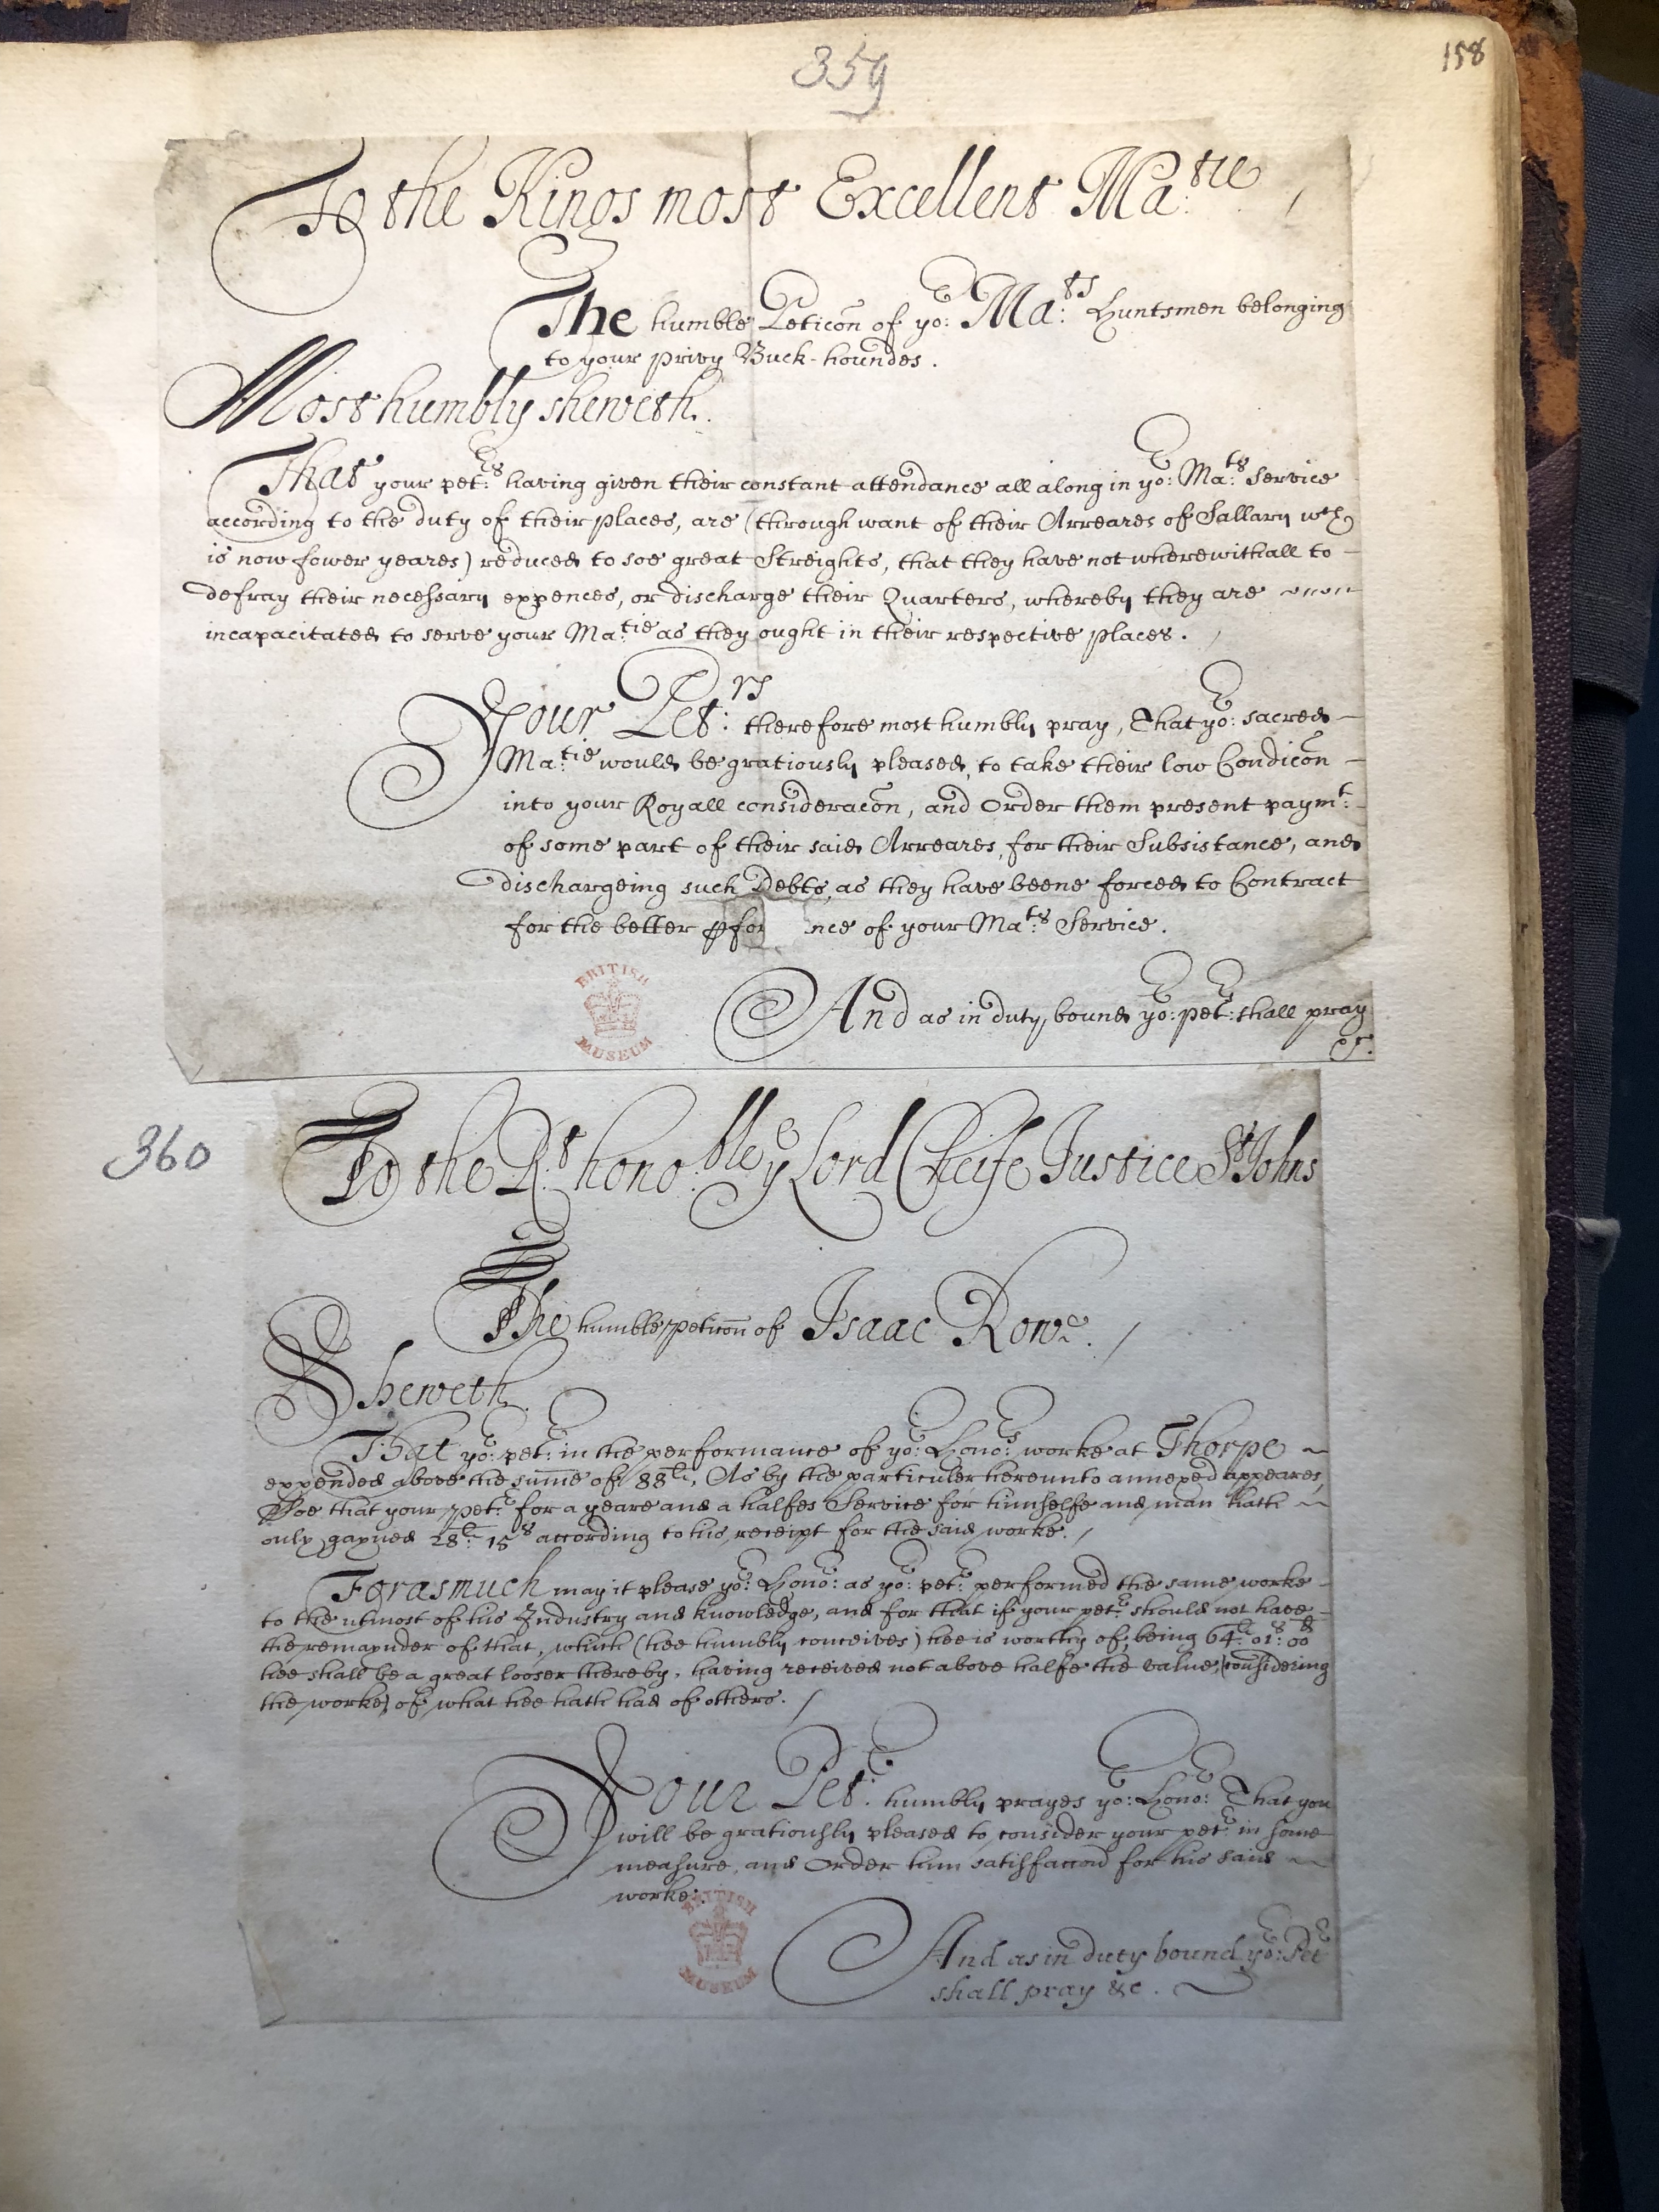 359
158
To the Kings most Excellent Ma:tie
The humble Peticōn of yo:r Ma:ts Huntsmen belonging
to your privy Buck-houndes.
Most humbly sheweth.
That your pet:rs having given their constant attendance all along in yo:r Ma:ts Service
according to the duty of their places, are (through want of their Arreares of Sallary wch
is now fower yeares) reduced to soe great Streights, that they have not wherewithall to –
defray their necessary expences, or discharge their Quarters, whereby they are
incapacitated to serve your Ma:tie as they ought in their respective places.
Your Pet:rs therefore most humbly pray, That yo:r sacred –
Ma:tie would be gratiously pleased, to take their low Condicōn –
into your Royall consideracōn, and Order them present paymt: –
of some part of their said Arreares, for their Subsistance, and
dischargeing such Debts, as they have beene forced to Contract
for the better ꝑfor nce of your Ma:ts Service.
And as in duty bound yo:r pet:rs shall pray
&c.
BRITISH
MUSEUM
360
To the R:t hono:ble ye Lord Cheife Justice St Johns
The humble peticōn of Isaac Rowe. /
Sheweth.
That yo:r pet:r in the performance of yo:r Hono:rs worke at Thorpe ~
expended above the sum̄e of 88li:, As by the particuler hereunto annexed appeares,
Soe that your pet:r for a yeare and a halfes Service for himselfe and man hath ~
only gayned 28li: 15s according to his receipt for the said worke. /
Forasmuch may it please yo:r Hono:r as yo:r pet:r performed the same worke –
to the utmost of his Industry and knowledge, and for that if your pet:r should not have –
the remaynder of that, which (hee humbly conceives) hee is worthy of, being 64li: 01s: 00d
hee shall be a great looser thereby, having received not above halfe the value, (considering
the worke) of what hee hath had of others. /
Your Pet:r humbly prayes yo:r Hono:r That you
will be gratiously pleased to consider your pet:r in some
measure, and Order him satisfaccōn for his said ~
worke.
BRITISH
MUSEUM
And as in duty bound yo:r Pet:r
shall pray &c.